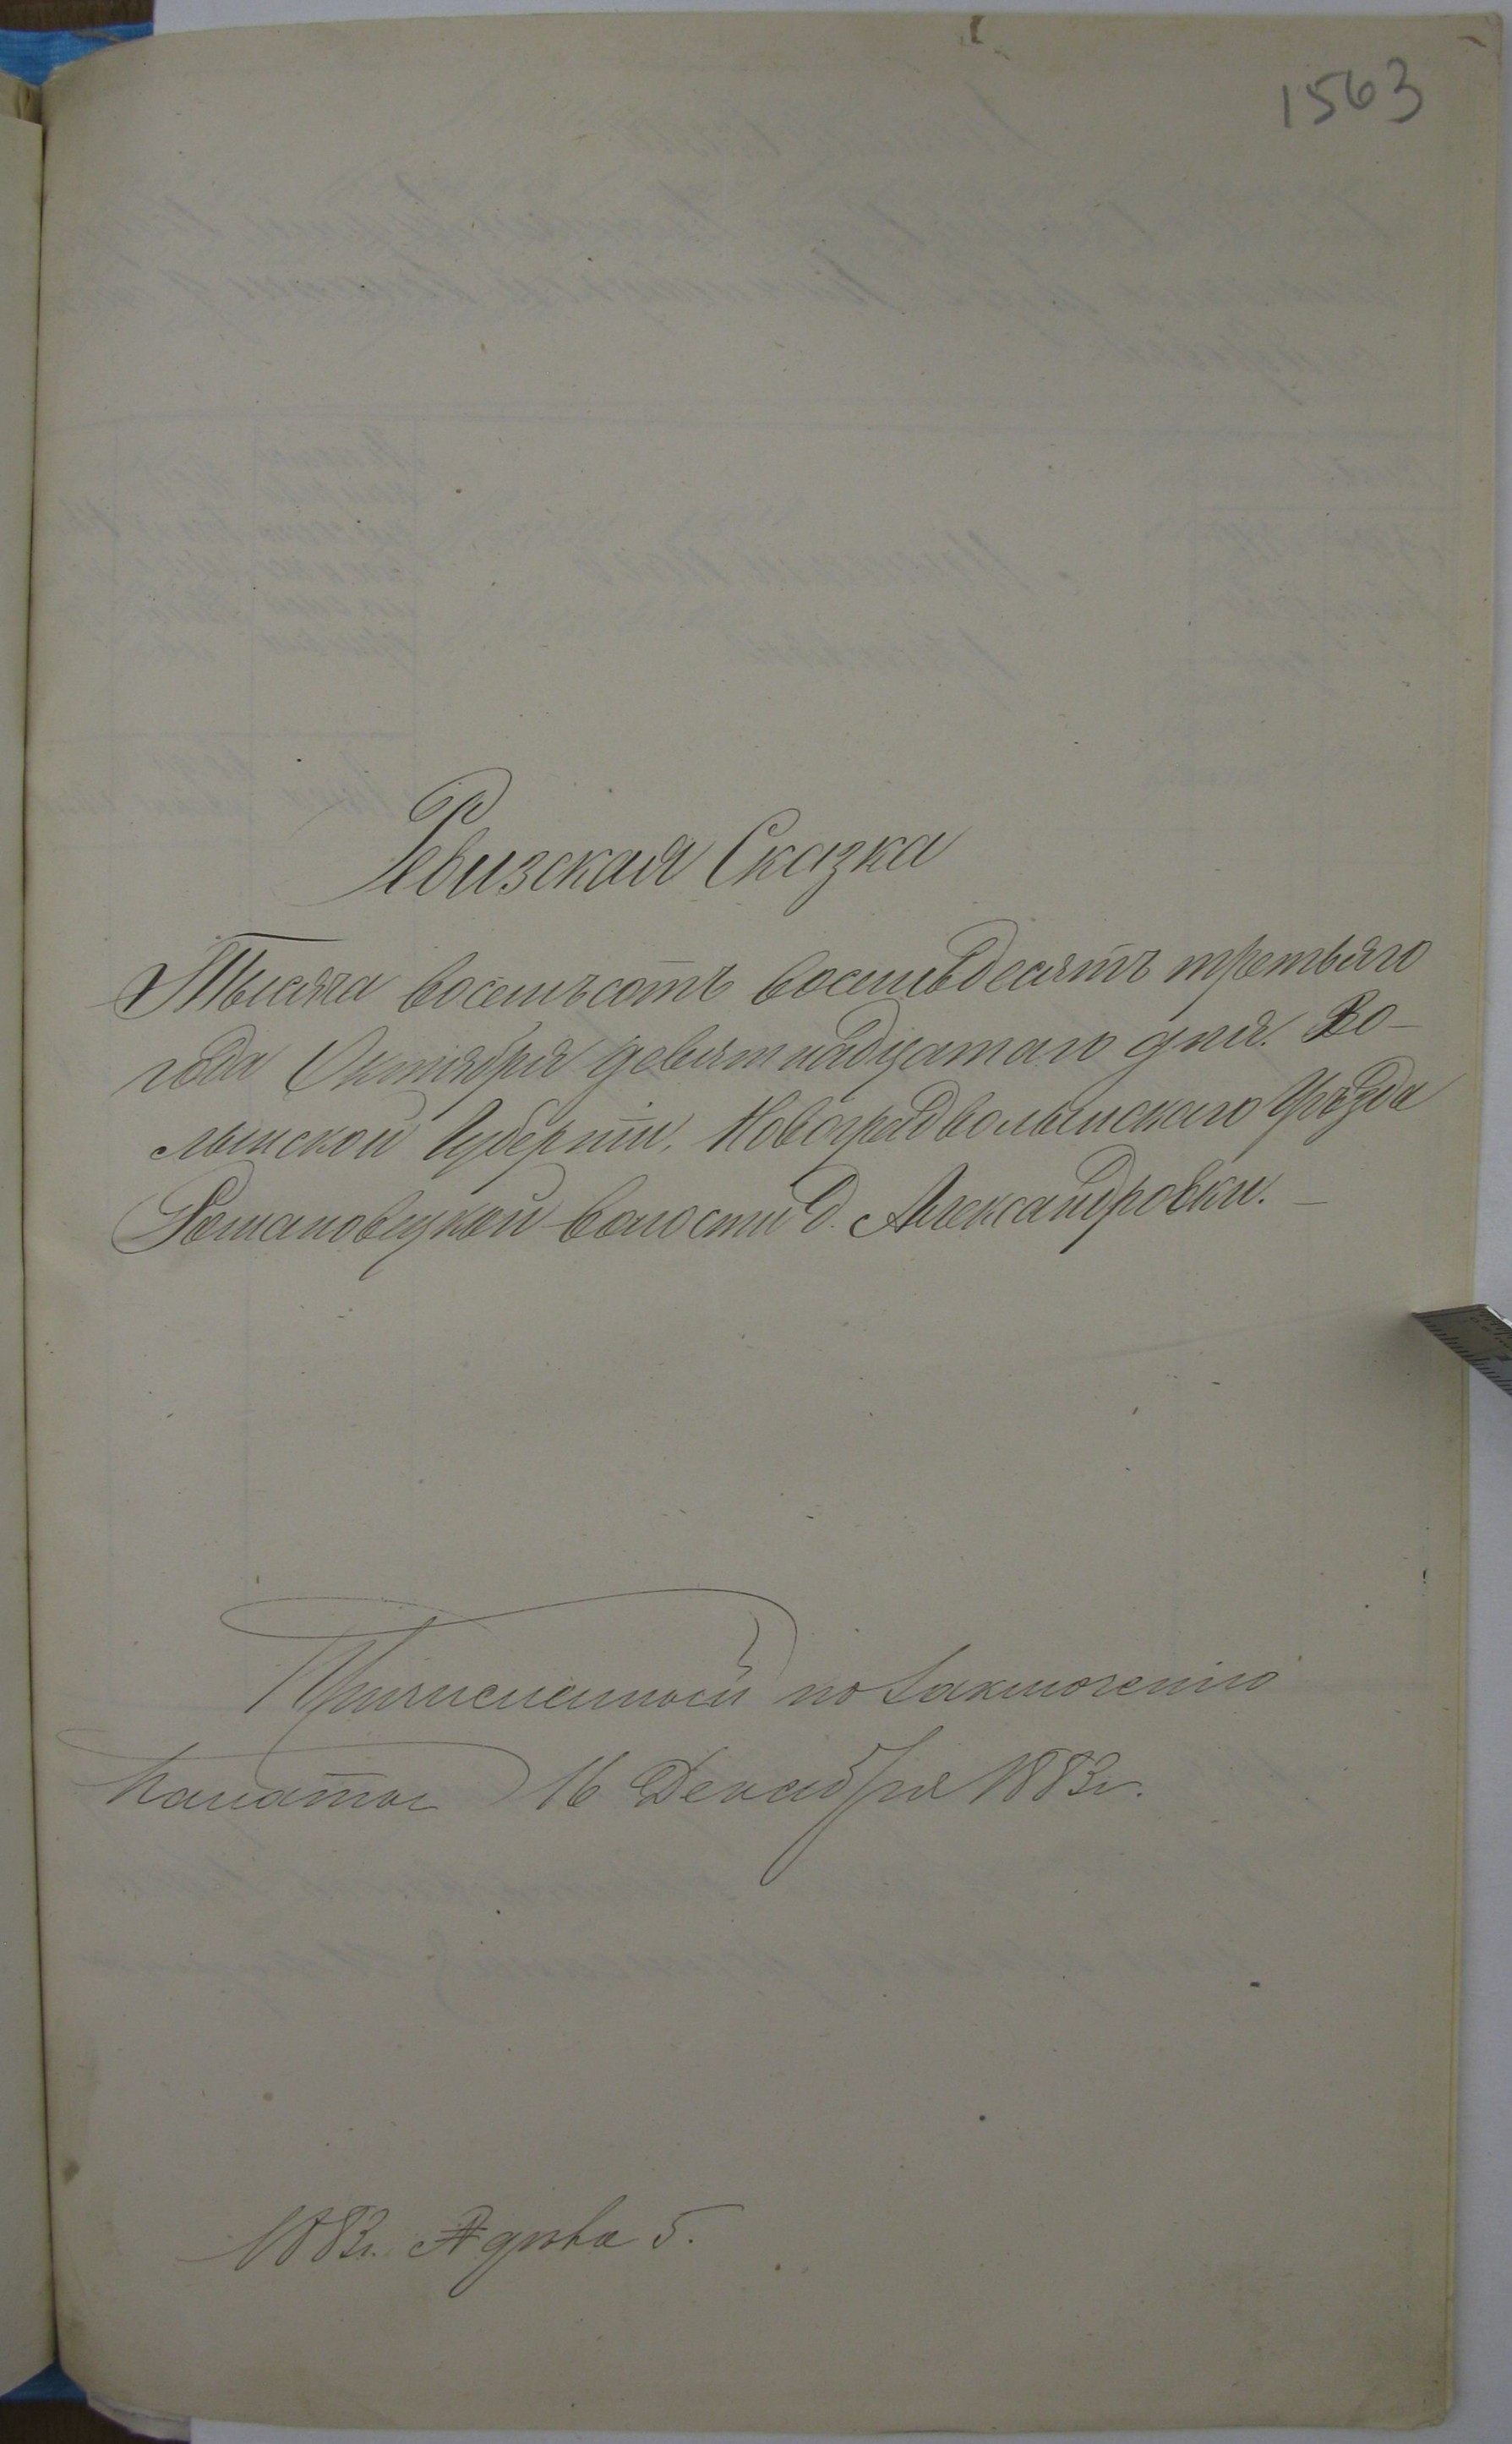 1563
Ревизская Сказка
Тысяча восемьсотъ восемьдесятъ третьяго
года Октября девятнадцатаго дня. Во-
лынской Губерніи, Новоградволынскаго Уѣзда
Романовецкой волости д. Александровки. —
Причисленный по заключенію
Палаты 16 Декабря 1883 г.
1883 г. № дѣла 5.